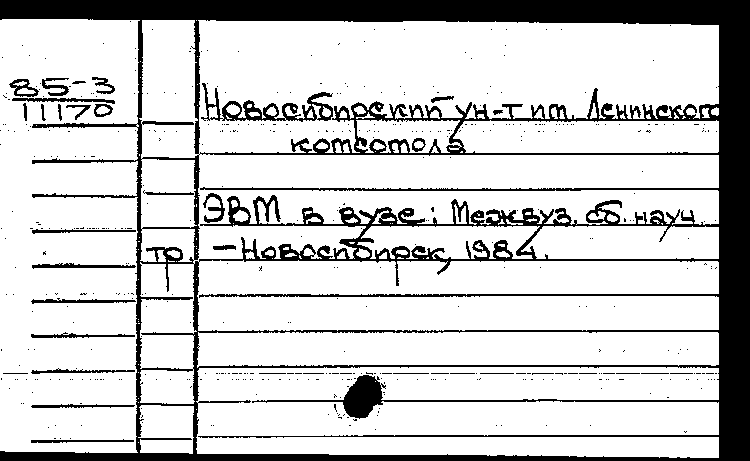 85-3
11170
Новосибирский ун-т им. Ленинского
комсомола
ЭВМ в вузе: Межвуз. сб. науч
тр. — Новосибирск, 1984.